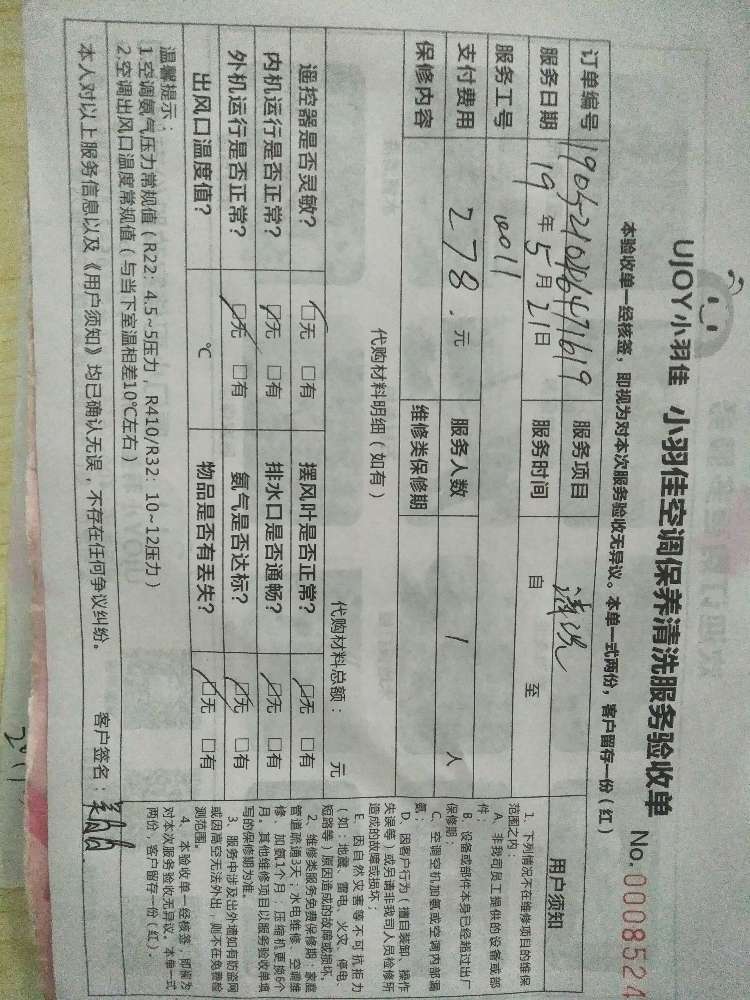 UJOY小羽佳 小羽佳空调保养清洗服务验收单
No. 0008524
本验收单一经核签，即视为对本次服务验收无异议。本单一式两份，客户留存一份（红）
订单编号 服务项目 清洗
服务日期 19年5月21日 服务时间 自 至
服务工号 0011
支付费用 278.元 服务人数 1 人
保修内容 维修类保修期
代购材料明细（如有）
代购材料总额： 元
遥控器是否灵敏？ 口无 口有 摆风叶是否正常？ 口无 口有
内机运行是否正常？ 口无 口有 排水口是否通畅？ 口无 口有
外机运行是否正常？ 口无 口有 氨气是否达标？ 口无 口有
出风口温度值？ ℃ 物品是否有丢失？ 口无 口有
温馨提示：
1.空调氨气压力常规值（R22：4.5~5压力，R410/R32：10~12压力）
2.空调出风口温度常规值（与当下室温相差10℃左右）
本人对以上服务信息以及《用户须知》均已确认无误，不存在任何争议纠纷。 客户签名：
用户须知
1、下列情况不在维修项目的维保
范围之内：
A、非我司员工提供的设备或部
件；
B、设备或部件本身已经超过出厂
保修期；
C、空调空机加氨或空调内部漏
氨；
D、因客户行为（擅自装卸、操作
失误等）或另请非我司人员检修所
造成的故障或损坏；
E、因自然灾害等不可抗拒力
（如：地震、雷电、火灾、停电、
短路等）原因造成的故障或损坏。
2、维修类服务免费保修期：家庭
管道疏通3天；水电维修、空调维
修、加氨1个月；压缩机更换6个
月，其他维修项目以服务验收单填
写的保修期为准。
3、服务中涉及出外墙如有防盗网
或因高空无法外出，则不在免费检
测范围。
4、本验收单一经核签，即视为
对本次服务验收无异议。本单一式
两份，客户留存一份（红）。